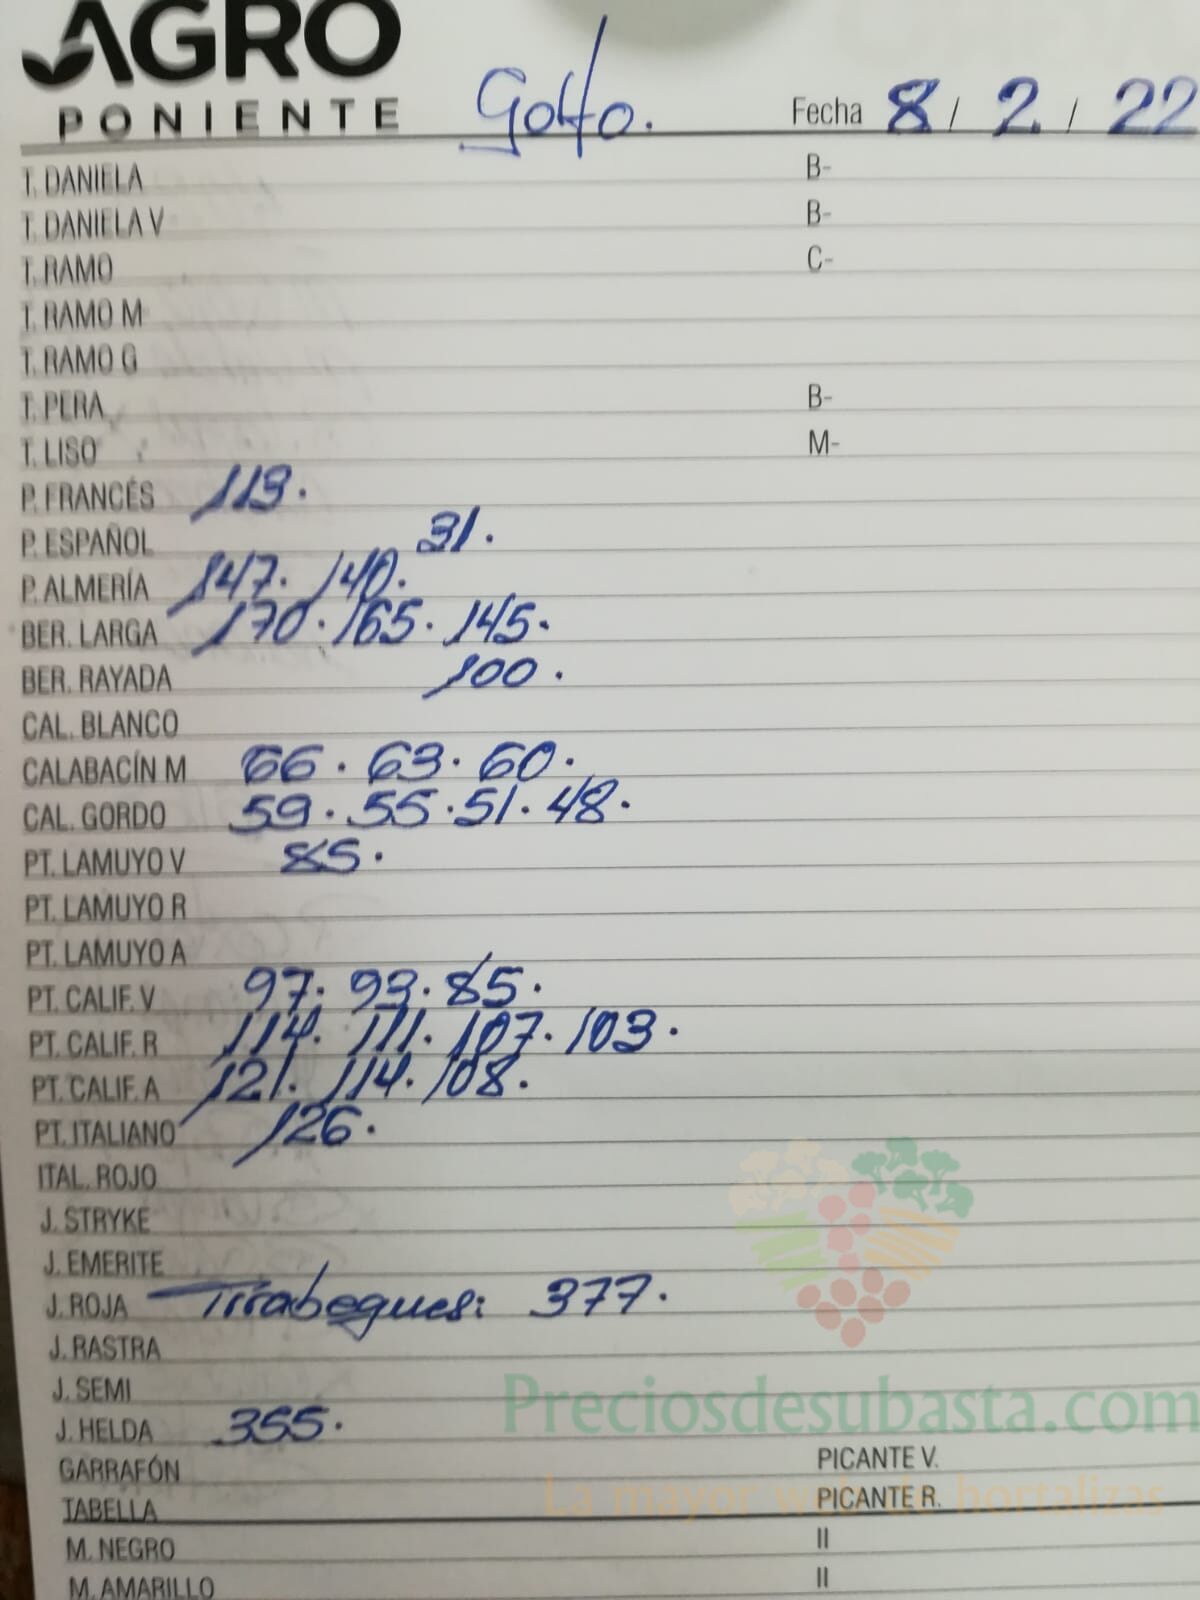 AGRO
PONIENTE Golfo. Fecha 8 / 2 / 22
T. DANIELA B-
T. DANIELA V B-
T. RAMO C-
T. RAMO M
T. RAMO G
T. PERA B-
T. LISO M-
P. FRANCÉS 113.
P. ESPAÑOL 31.
P. ALMERÍA 147. 140.
BER. LARGA 170. 165. 145.
BER. RAYADA 100.
CAL. BLANCO
CALABACÍN M 66. 63. 60.
CAL. GORDO 59. 55. 51. 48.
PT. LAMUYO V 85.
PT. LAMUYO R
PT. LAMUYO A
PT. CALIF. V 97. 93. 85.
PT. CALIF. R 114. 111. 107. 103.
PT. CALIF. A 121. 114. 108.
PT. ITALIANO 126.
ITAL. ROJO
J. STRYKE
J. EMERITE
J. ROJA Tirabeques: 377.
J. RASTRA
J. SEMI
Preciosdesubasta.com
J. HELDA 355.
GARRAFÓN PICANTE V.
La mayor web de hortalizas
TABELLA PICANTE R.
M. NEGRO II
M. AMARILLO II